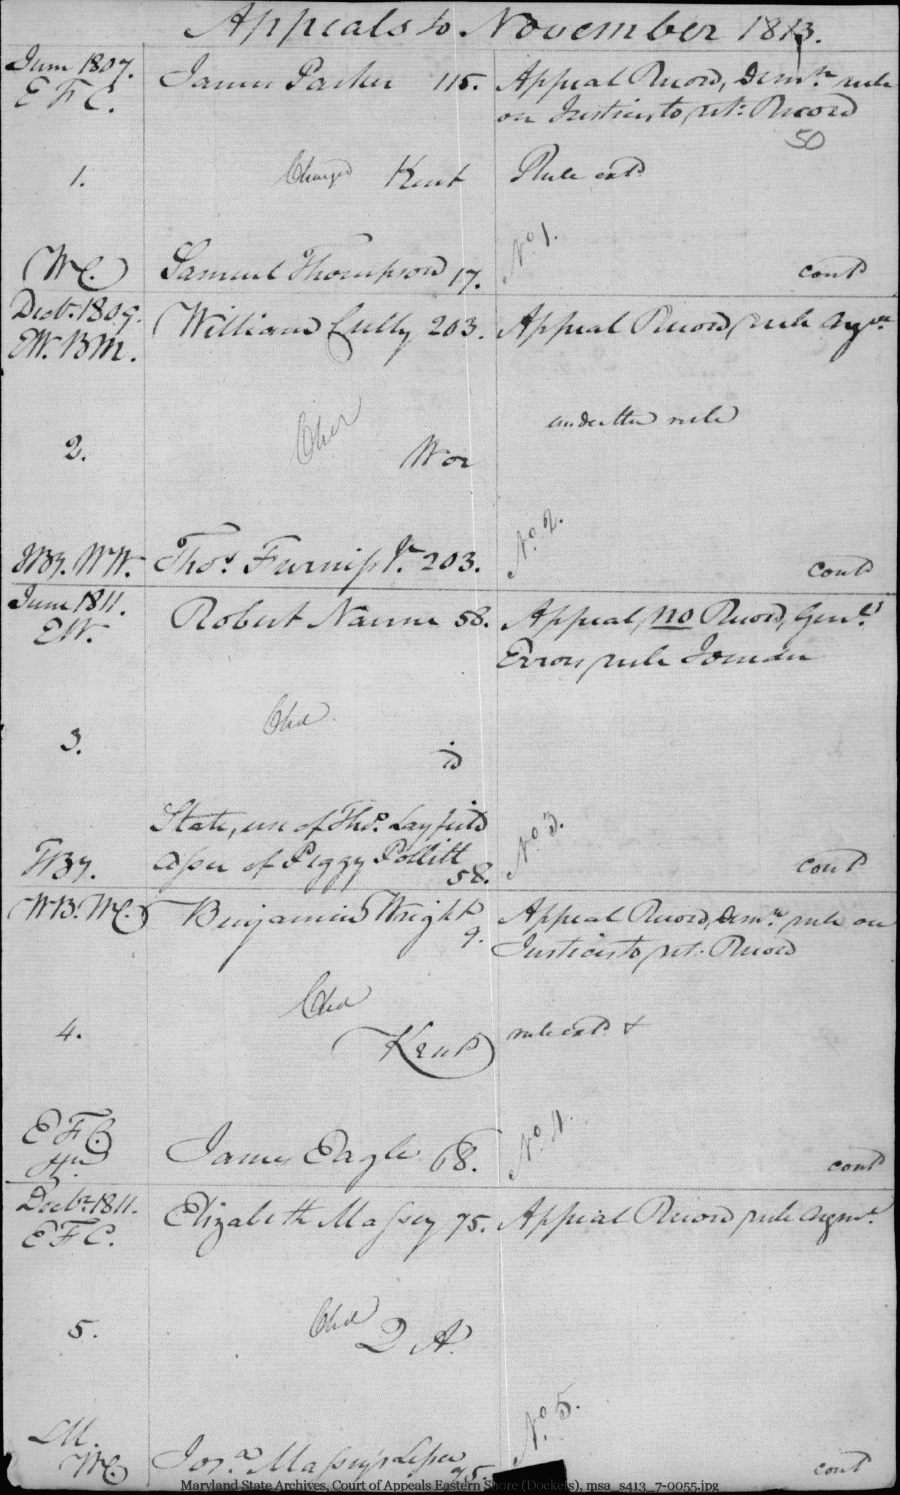 Appeals to November 1813.
June 1807.
E F C.
James Parker 115.
Appeal Record, Demr. rule
on Justices to ret: Record
50
1.
Charged Kent
Rule extd.
No. 1.
WC.
Samuel Thompson 17.
contd
Decbr. 1809.
EW. BM.
William Cully 203.
Appeal Record, rule Argmt.
under the rule
2.
Wor
No. 2.
JBy. WW.
Thos. Furniss Jr. 203.
contd
June 1811.
EW.
Robert Nairne 58.
Appeal, no Record, Genl.
Errors, rule Joinder
3.
Chd
id
State, use of Thos. Layfield
Asser of Peggy Pollitt
58.
JBy.
No. 3.
contd
WB. WC.
Benjamin Wright
9.
Appeal Record, Demr. rule on
Justices to ret: Record
4.
Chd
Kent
rule extd. +
E F C.
No. 4.
James Eagle 68.
contd
Decbr. 1811.
E F C.
Elizabeth Massey 75.
Appeal Record rule Argmt.
5.
Chd
Q A.
No. 5.
LM.
WC
Josa. Massey's Lessee
75.
contd
Maryland State Archives, Court of Appeals Eastern Shore (Dockets), msa_s413_7-0055.jpg